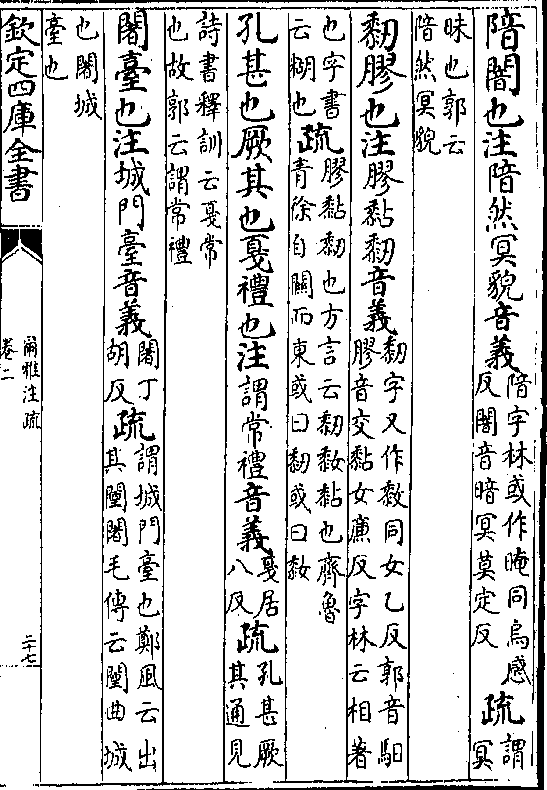 隌闇也注隌然冥貌音義
隌字林或作晻同烏感
反闇音暗冥莫定反
疏
謂
冥
昧也郭云
隌然冥貌
䵑膠也注膠黏䵑音義
䵑字又作同女乙反郭音馹
膠音交黏女亷反字林云相著
也字書
云糊也
疏
膠黏䵑也方言云䵑黏也齊魯
青徐自關而東或曰䵑或曰
孔甚也厥其也戛禮也注謂常禮音義
戛居
八反
疏
孔甚厥
其通見
詩書釋訓云戛常
也故郭云謂常禮
闍臺也注城門臺音義
闍丁
胡反
疏
謂城門臺也鄭風云出
其闉闍毛傳云闉曲城
也闍城
臺也
欽定四庫全書
爾雅注疏
卷二
二十七